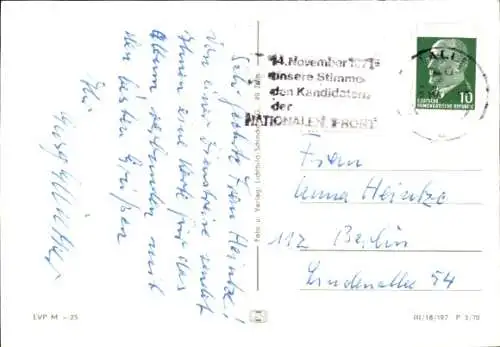 Sehr geehrte Frau Heintze!
Von einer Dienstreise sendet
Ihnen eine Karte für das
Album, verbunden mit
den besten Grüßen
Ihr
14. November 1971
unsere Stimme
den Kandidaten
der
NATIONALEN FRONT
HALLE
10
DEUTSCHE
DEMOKRATISCHE REPUBLIK
Frau
Anna Heintze
112 Berlin
Lindenallee 54
Foto u. Verlag: Lichtbild-Schincke
EVP M –.25
III/18/197 P 3/70